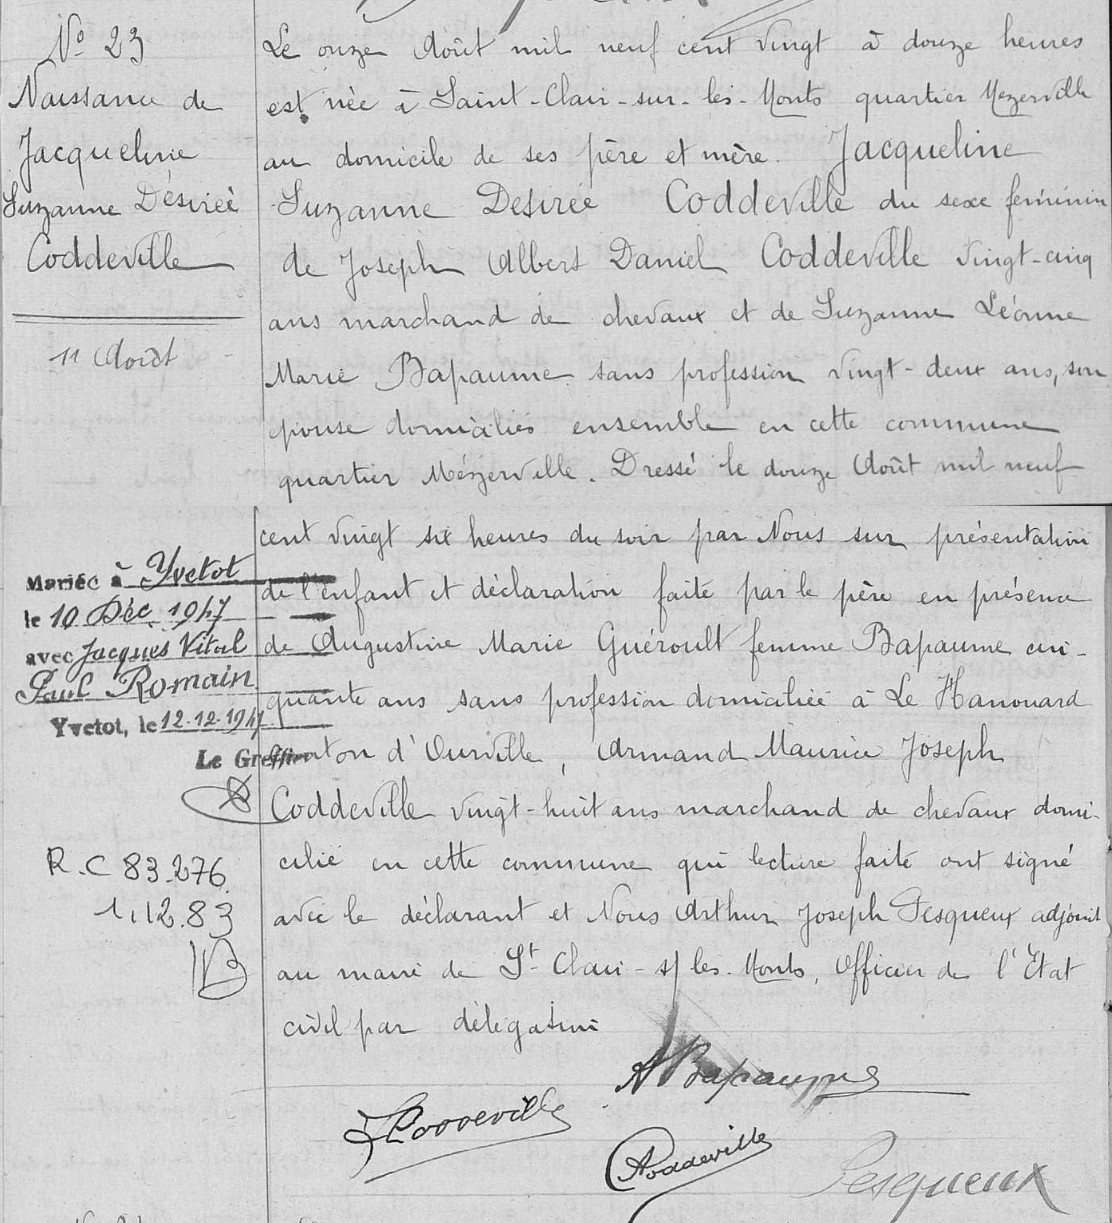 N° 23
Naissance de
Jacqueline
Suzanne Désirée
Coddeville
11 Août
Le onze Août mil neuf cent vingt à douze heures
est née à Saint-Clair-sur-les-Monts quartier Mézerville
au domicile de ses père et mère. Jacqueline
Suzanne Desirée Coddeville du sexe féminin
de Joseph Albert Daniel Coddeville vingt-cinq
ans marchand de chevaux et de Suzanne Léonne
Marie Bapaume sans profession vingt-deux ans, son
épouse domiciliés ensemble en cette commune
quartier Mézerville. Dressé le douze Août mil neuf
cent vingt six heures du soir par Nous sur présentation
de l'enfant et déclaration faite par le père en présence
de Augustine Marie Guéroult femme Bapaume cin-
quante ans sans profession domiciliée à Le Hanouard
canton d'Ourville, Armand Maurice Joseph
Coddeville vingt-huit ans marchand de chevaux domi-
cilié en cette commune qui lecture faite ont signé
avec le déclarant et Nous Arthur Joseph Pesqueux adjoint
au maire de St-Clair-s/ les-Monts, Officier de l'Etat
civil par délégation
Mariée à Yvetot
le 10 Déc. 1947
avec Jacques Vital
Paul Romain
Yvetot, le 12.12.1947
Le Greffier
R.C 83.276
1.12.83
A Bapaume
J Coddeville
A Coddeville
Pesqueux